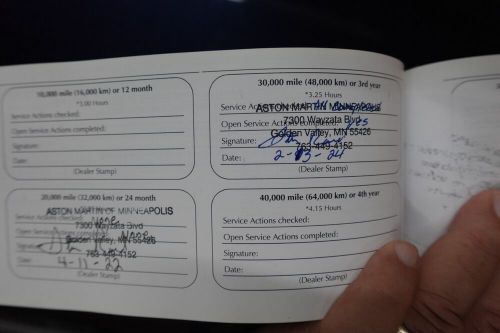 10,000 mile (16,000 km) or 12 month
*3.00 Hours
Service Actions checked:
Open Service Actions completed:
Signature:
Date:
(Dealer Stamp)
20,000 mile (32,000 km) or 24 month
ASTON MARTIN OF MINNEAPOLIS
Service Actions checked: None
7300 Wayzata Blvd
Open Service Actions completed: None
Golden Valley, MN 55426
Signature:
763-449-4152
Date: 4-11-22
(Dealer Stamp)
30,000 mile (48,000 km) or 3rd year
*3.25 Hours
Service Actions checked:
ASTON MARTIN MINNEAPOLIS
7300 Wayzata Blvd
Open Service Actions completed: yes
Golden Valley, MN 55426
Signature:
763-449-4152
Date: 2-13-24
(Dealer Stamp)
40,000 mile (64,000 km) or 4th year
*4.15 Hours
Service Actions checked:
Open Service Actions completed:
Signature:
Date:
(Dealer Stamp)